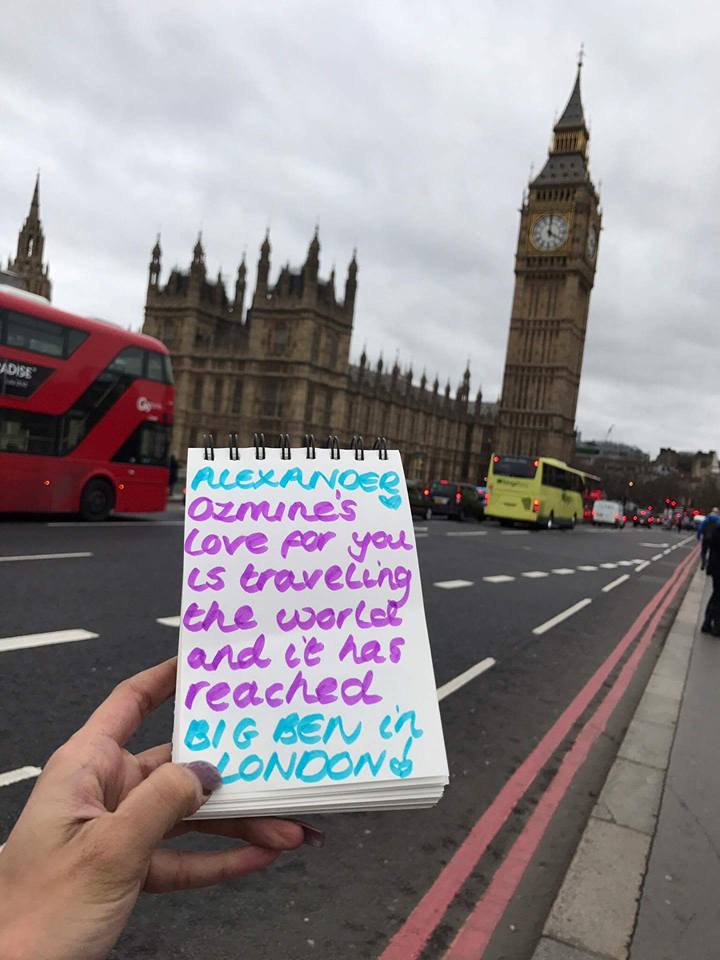 ADISE
Go
ALEXANDER
Ozmine's
Love for you
is traveling
the world
and it has
reached
BIG BEN in
LONDON